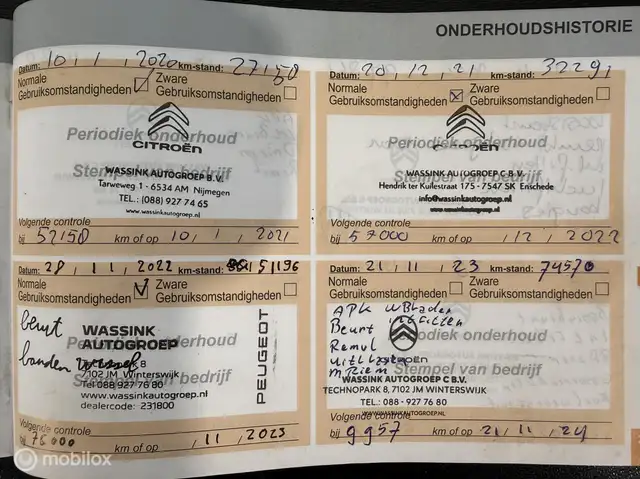 ONDERHOUDSHISTORIE
Datum: 10 , 1 , 2020 km-stand: 27158
Normale Gebruiksomstandigheden
Zware Gebruiksomstandigheden
Periodiek onderhoud
CITROËN
Stempel van bedrijf
WASSINK AUTOGROEP B.V.
Tarweweg 1 - 6534 AM Nijmegen
TEL.: (088) 927 74 65
www.wassinkautogroep.nl
Volgende controle
bij 52158 km of op 10 , 1 , 2021
Datum: 20 , 12 , 21 km-stand: 32291
Normale Gebruiksomstandigheden
Zware Gebruiksomstandigheden
Periodiek onderhoud
Stempel van bedrijf
WASSINK AUTOGROEP C B.V.
Hendrik ter Kuilestraat 175 - 7547 SK Enschede
info@wassinkautogroep.nl
www.wassinkautogroep.nl
Volgende controle
bij 57000 km of op , 12 , 2022
Datum: 28 , 11 , 2022 km-stand: 51196
Normale Gebruiksomstandigheden
Zware Gebruiksomstandigheden
beurt
banden wissel
WASSINK
AUTOGROEP
Periodiek onderhoud
Stempel van bedrijf
7102 JM Winterswijk
Tel 088 927 76 80
www.wassinkautogroep.nl
dealercode: 231800
PEUGEOT
Volgende controle
bij 76000 km of op , 11 , 2023
Datum: 21 , 11 , 23 km-stand: 74570
Normale Gebruiksomstandigheden
Zware Gebruiksomstandigheden
APK
Beurt
Periodiek onderhoud
Stempel van bedrijf
WASSINK AUTOGROEP C B.V.
TECHNOPARK 8, 7102 JM WINTERSWIJK
TEL.: 088 - 927 76 80
WWW.WASSINKAUTOGROEP.NL
Volgende controle
bij 9957 km of op 21 , 11 , 24
mobilox